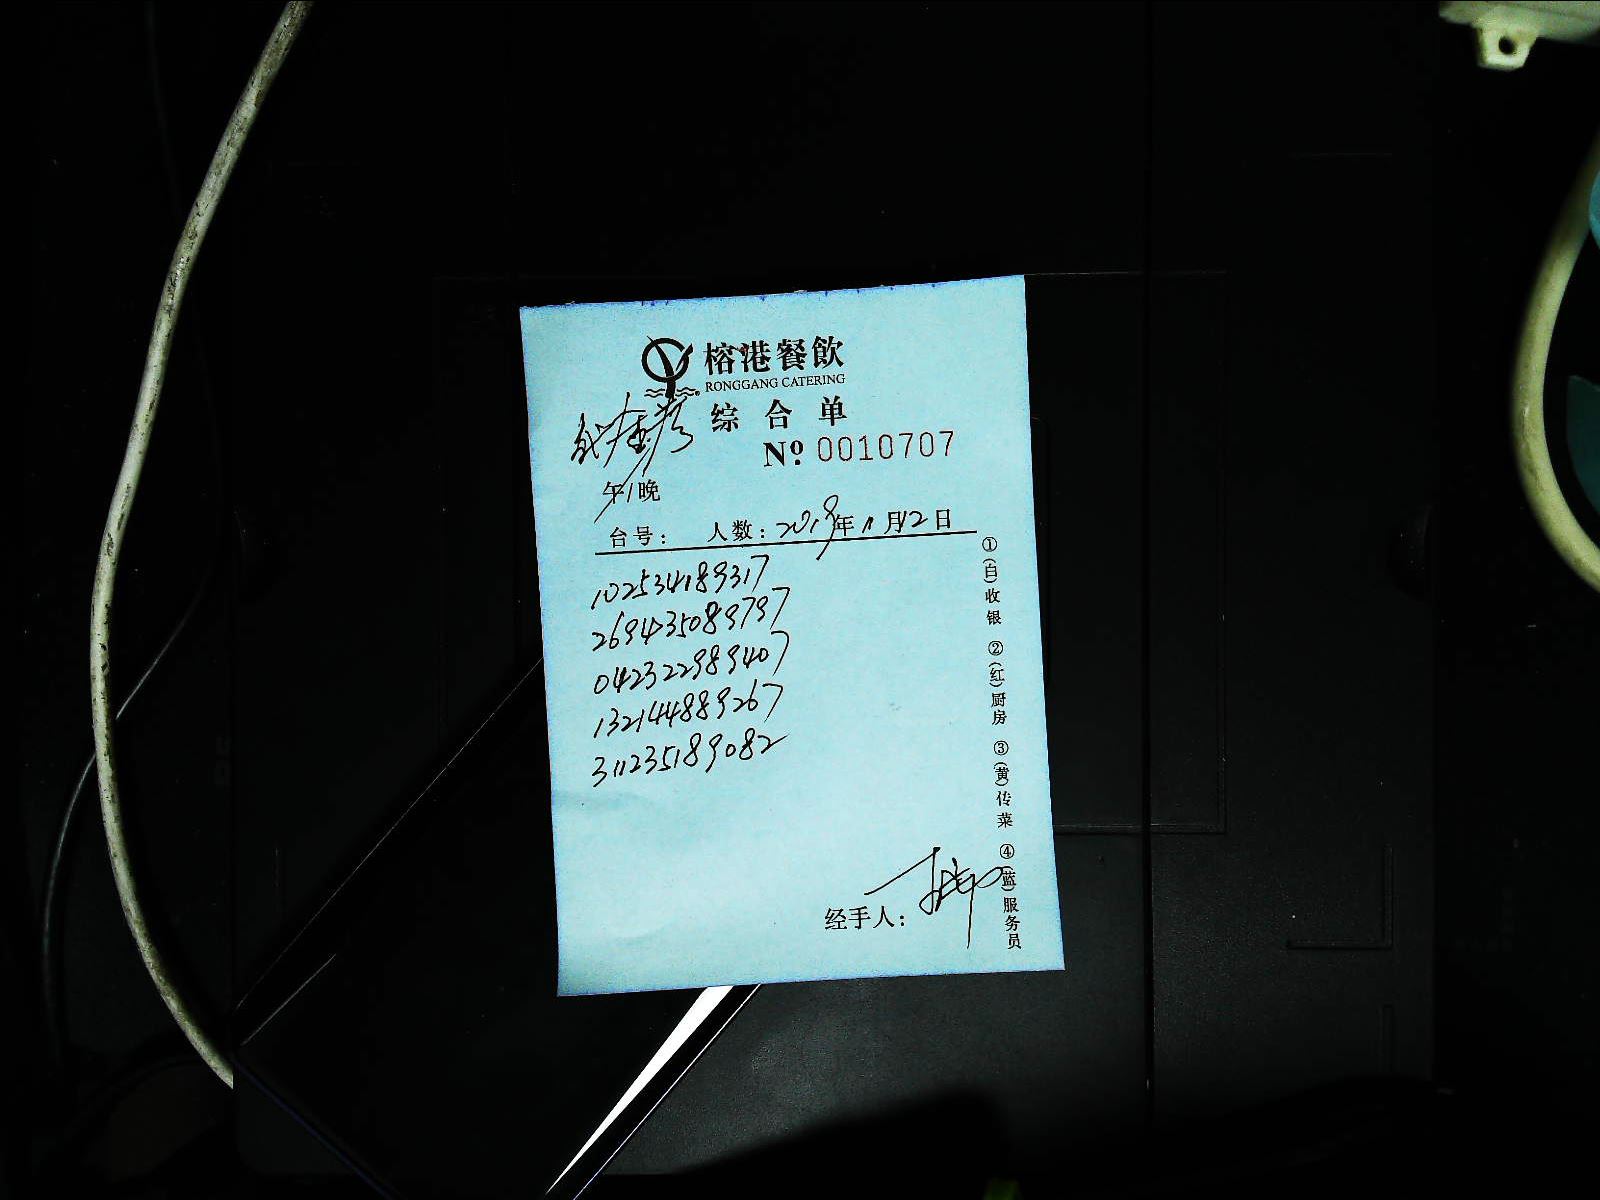 榕港餐飲
RONGGANG CATERING
综合单
Nº 0010707
午/晚
台号： 人数：2019年11月12日
102534189317
269435089797
042322989407
132144889267
311235189082
①(白)收银 ②(红)厨房 ③(黄)传菜 ④(蓝)服务员
经手人：